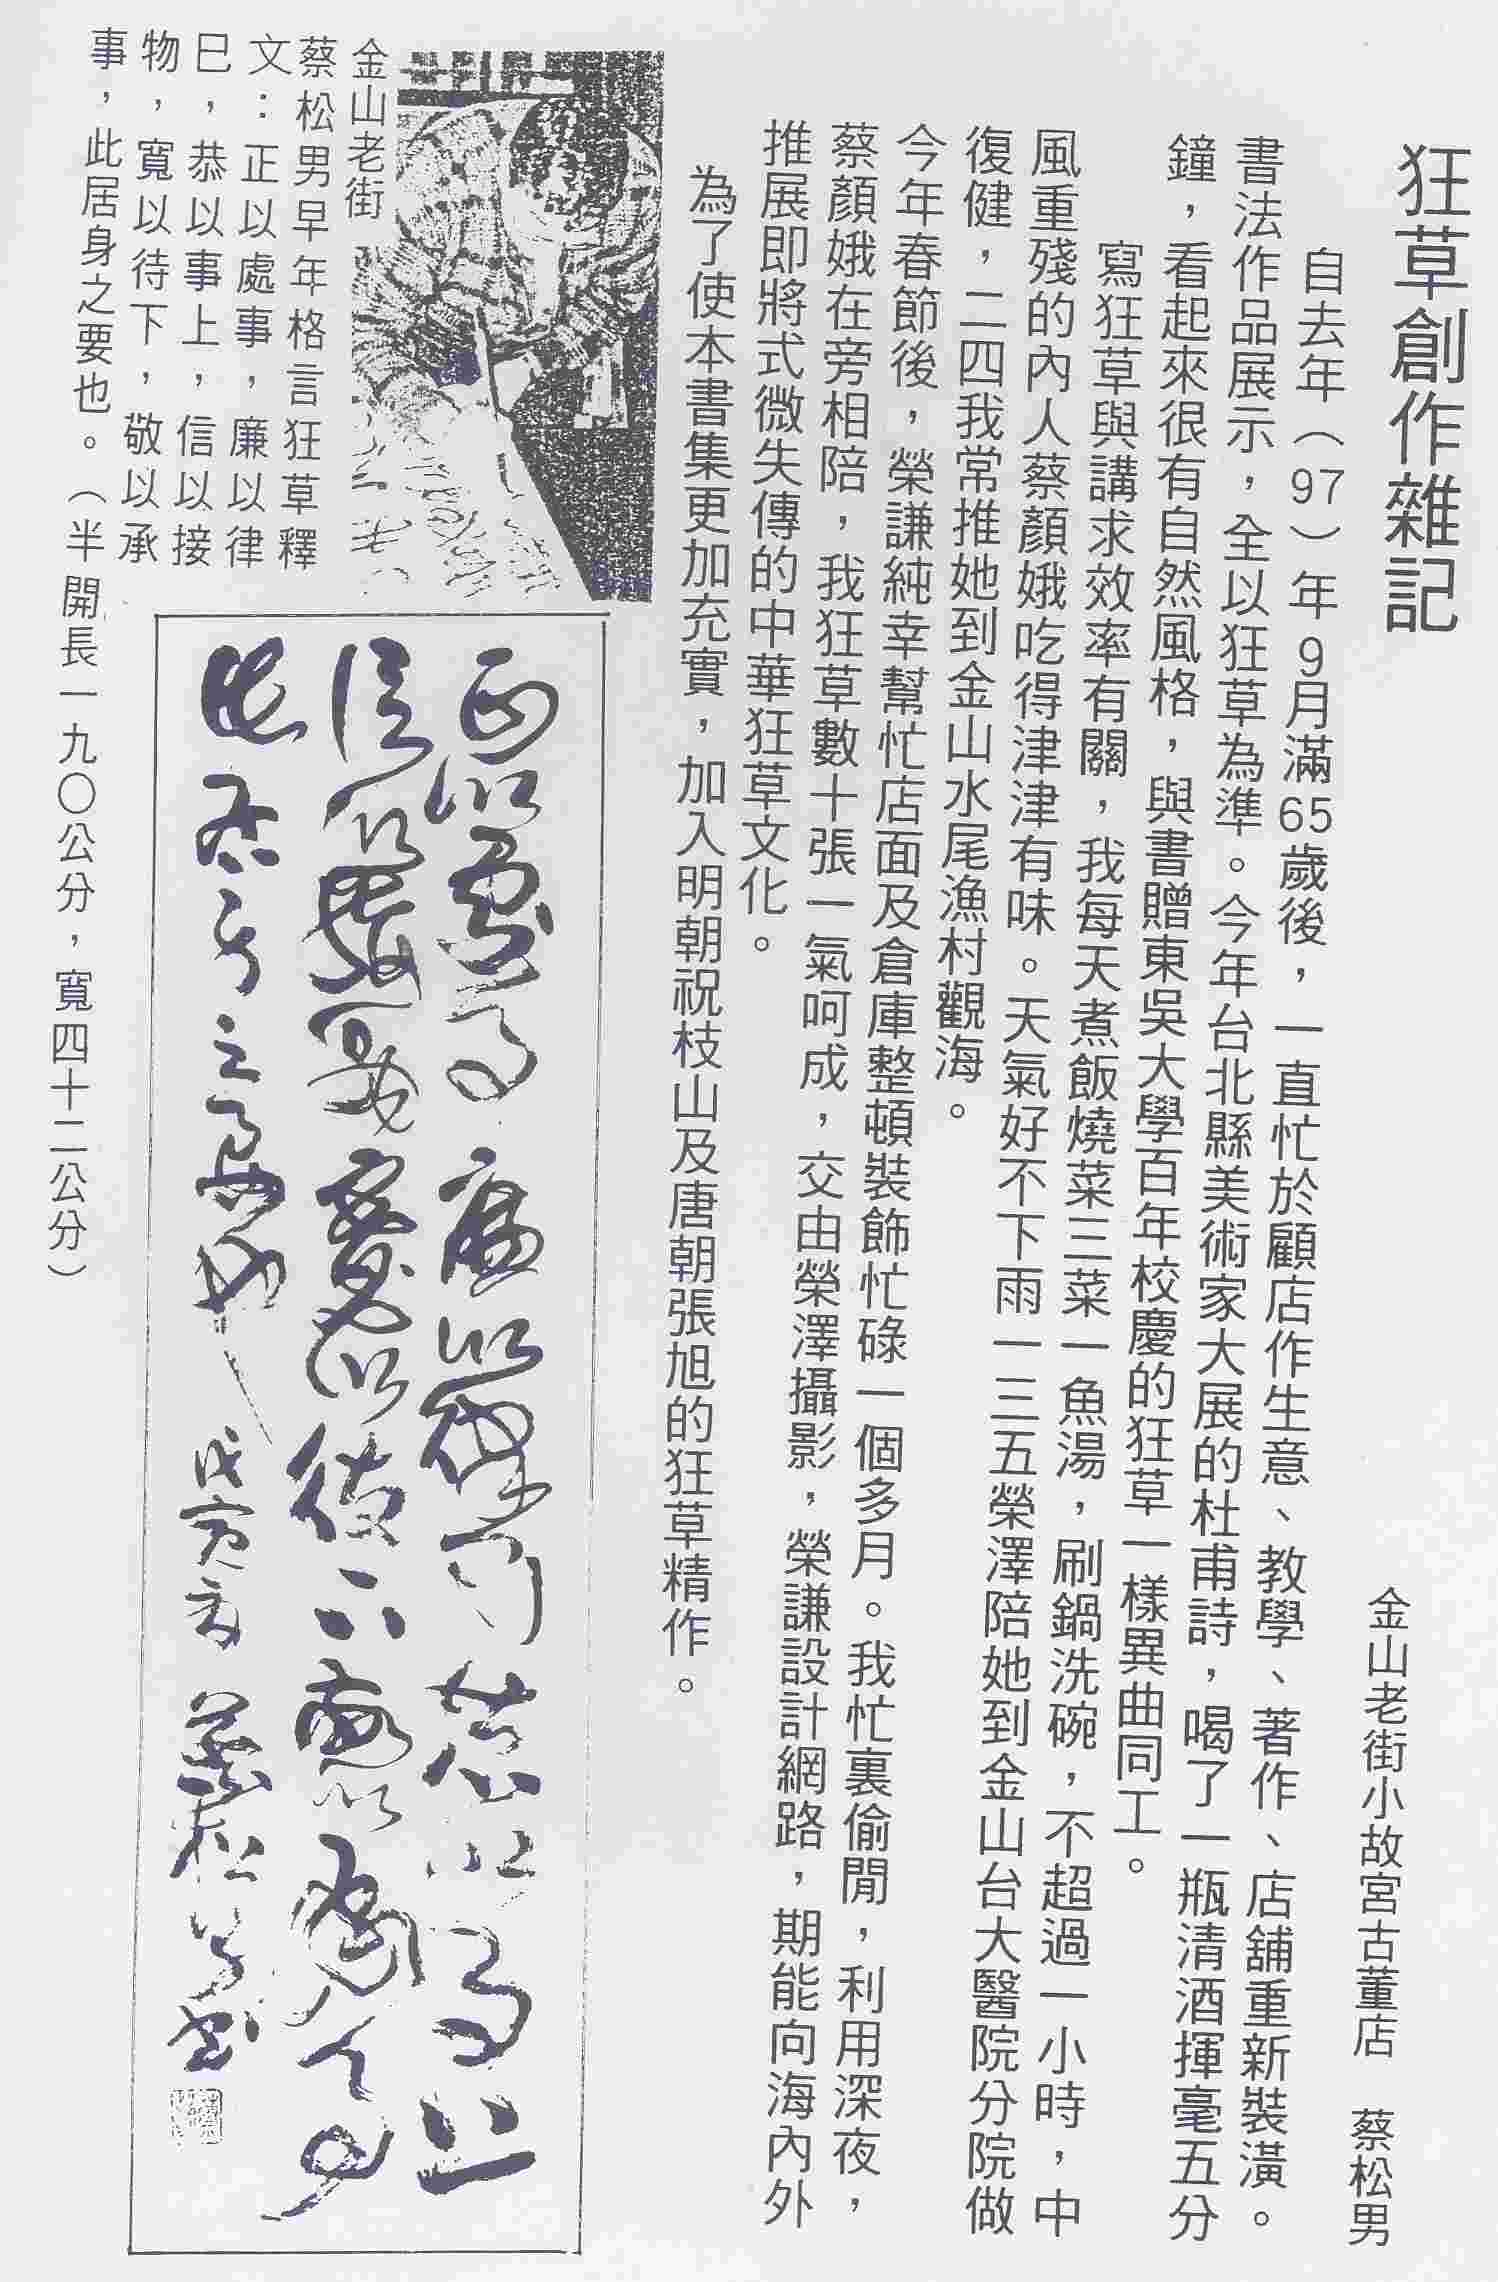 狂草創作雜記
金山老街小故宮古董店　蔡松男
自去年（97）年9月滿65歲後，一直忙於顧店作生意、教學、著作、店舖重新裝潢。
書法作品展示，全以狂草為準。今年台北縣美術家大展的杜甫詩，喝了一瓶清酒揮毫五分
鐘，看起來很有自然風格，與書贈東吳大學百年校慶的狂草一樣異曲同工。
寫狂草與講求效率有關，我每天煮飯燒菜三菜一魚湯，刷鍋洗碗，不超過一小時，中
風重殘的內人蔡顏娥吃得津津有味。天氣好不下雨一三五榮澤陪她到金山台大醫院分院做
復健，二四我常推她到金山水尾漁村觀海。
今年春節後，榮謙純幸幫忙店面及倉庫整頓裝飾忙碌一個多月。我忙裏偷閒，利用深夜，
蔡顏娥在旁相陪，我狂草數十張一氣呵成，交由榮澤攝影，榮謙設計網路，期能向海內外
推展即將式微失傳的中華狂草文化。
為了使本書集更加充實，加入明朝祝枝山及唐朝張旭的狂草精作。
金山老街
蔡松男早年格言狂草釋
文：正以處事，廉以律
巳，恭以事上，信以接
物，寬以待下，敬以承
事，此居身之要也。（半開長一九〇公分，寬四十二公分）